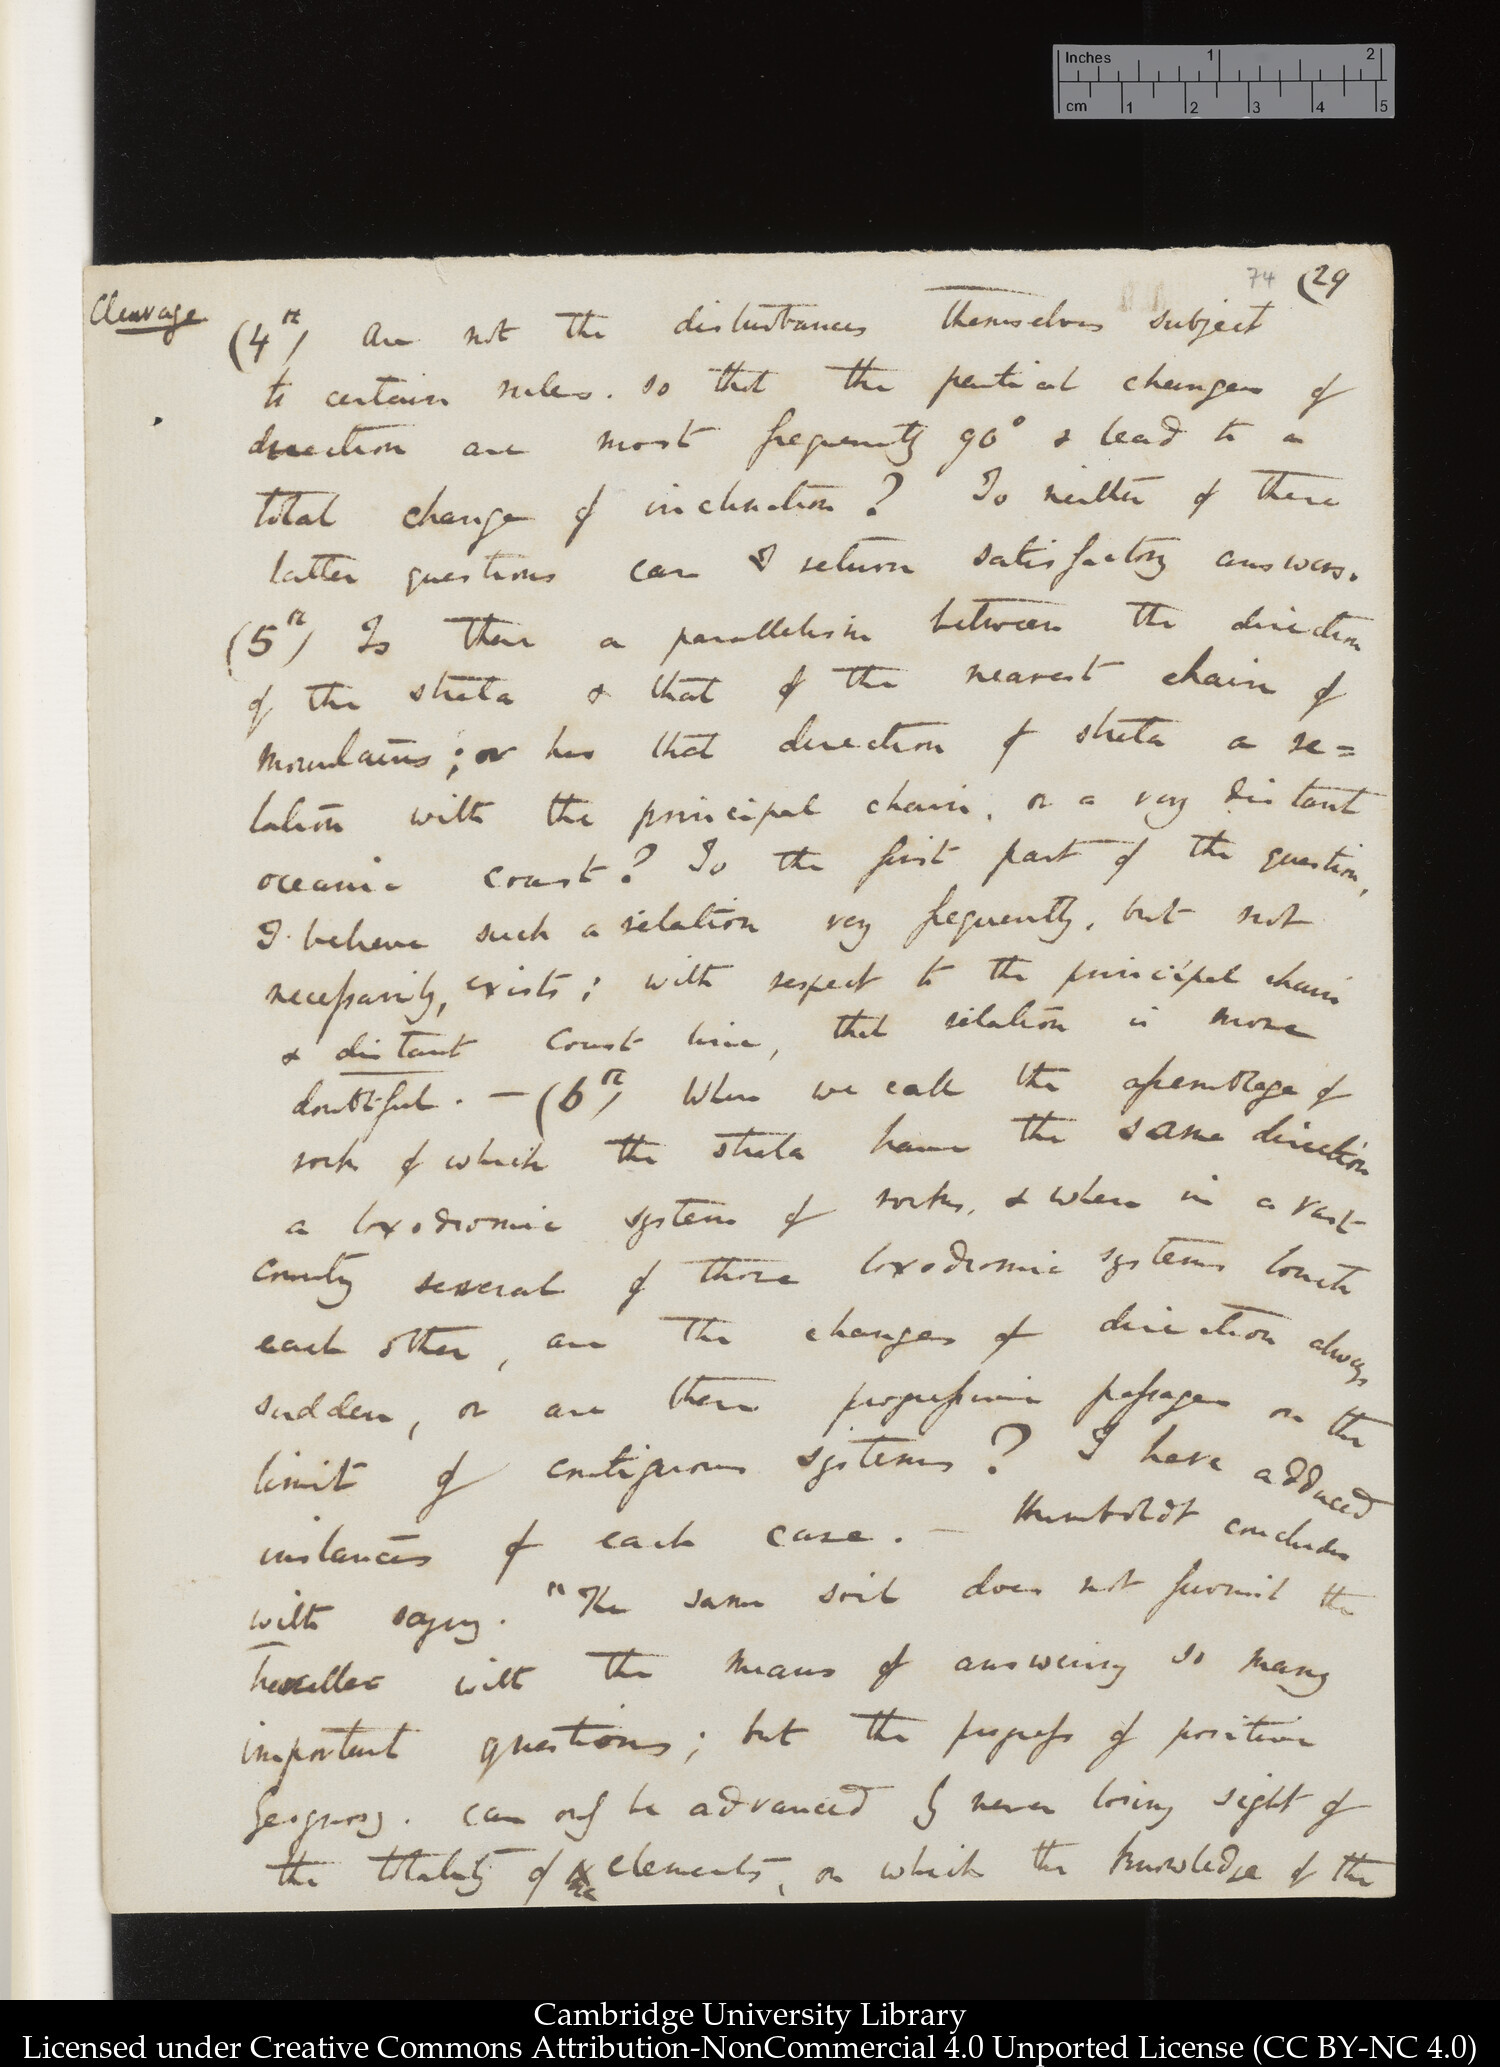 Inches 1 2
cm 1 2 3 4 5
74 (29
Cleavage
(4th) Are not the disturbances themselves subject
to certain rules. so that the partial changes of
direction are most frequently 90° & lead to a
total change of inclination? To neither of these
latter questions can I return satisfactory answers.
(5th) Is there a parallelism between the direction
of the strata & that of the nearest chain of
mountains; or has that direction of strata a re=
lation with the principal chain, or a very distant
oceanic coast? To the first part of the question,
I believe such a relation very frequently, but not
necessarily, exists; with respect to the principal chain
& distant coast line, that relation is more
doubtful. — (6th) When we call the assemblage of
rocks of which the strata have the same direction
a loxodromic system of rocks, & when in a vast
country several of those loxodromic systems touch
each other, are the changes of direction always
sudden, or are there progressive passages on the
limit of contiguous systems? I have adduced
instances of each case. — Humboldt concludes
with saying. "The same soil does not furnish the
traveller with the means of answering so many
important questions; but the progress of positive
geognosy. can only be advanced by never losing sight of
the totality of elements, on which the knowledge of the
Cambridge University Library
Licensed under Creative Commons Attribution-NonCommercial 4.0 Unported License (CC BY-NC 4.0)